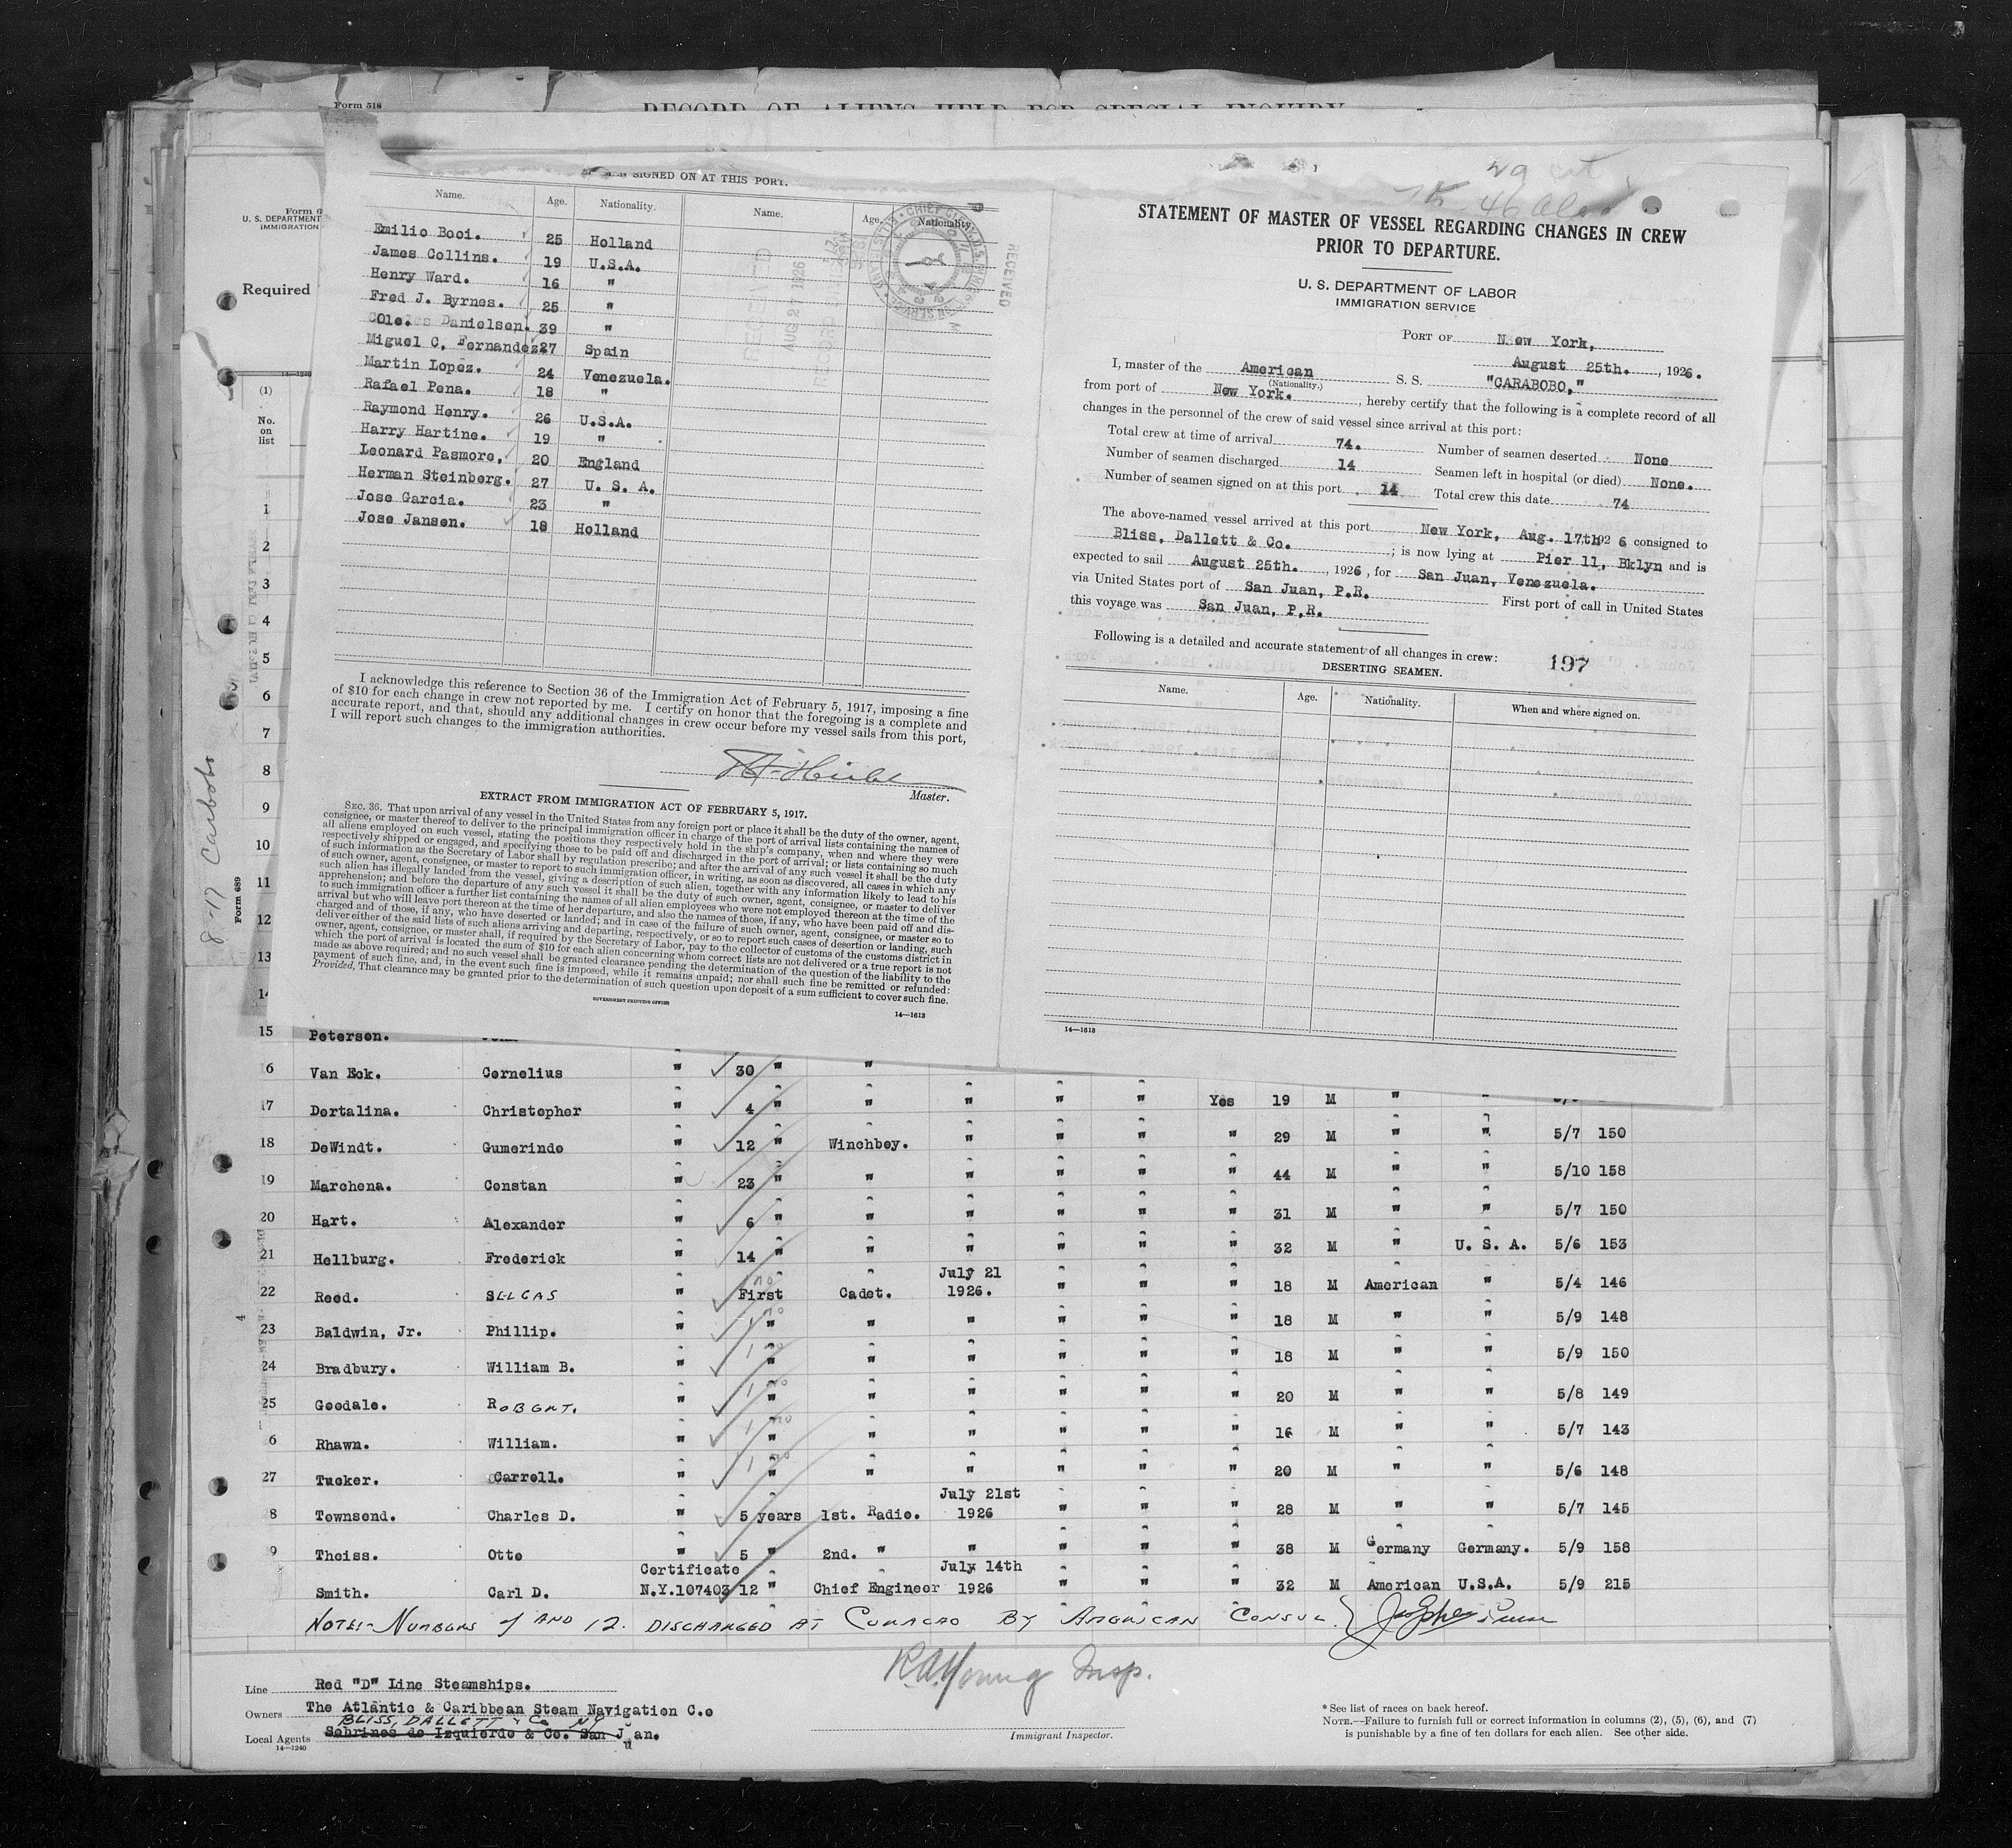 Form 518
RECORD OF ALIENS HELD FOR SPECIAL INQUIRY
U. S. DEPARTMENT
IMMIGRATION
Required
14—1240
(1)
No.
on
list
1
2
3
4
5
6
7
8
9
10
11
12
13
14
8-17 Carabobo
Form 689
SIGNED ON AT THIS PORT.
Name. Age. Nationality. Name. Age. Nationality.
Emilio Booi. 25 Holland
James Collins. 19 U.S.A.
Henry Ward. 16 "
Fred J. Byrnes. 25 "
Ole. Danielsen. 39 "
Miguel C. Fernandez. 27 Spain
Martin Lopez. 24 Venezuela.
Rafael Pena. 18 "
Raymond Henry. 26 U.S.A.
Harry Hartine. 19 "
Leonard Pasmore. 20 England
Herman Steinberg. 27 U. S. A.
Jose Garcia. 23 "
Jose Jansen. 18 Holland
RECEIVED
AUG 27 1926
RECEIVED
I acknowledge this reference to Section 36 of the Immigration Act of February 5, 1917, imposing a fine
of $10 for each change in crew not reported by me. I certify on honor that the foregoing is a complete and
accurate report, and that, should any additional changes in crew occur before my vessel sails from this port,
I will report such changes to the immigration authorities.
Master.
EXTRACT FROM IMMIGRATION ACT OF FEBRUARY 5, 1917.
SEC. 36. That upon arrival of any vessel in the United States from any foreign port or place it shall be the duty of the owner, agent,
consignee, or master thereof to deliver to the principal immigration officer in charge of the port of arrival lists containing the names of
all aliens employed on such vessel, stating the positions they respectively hold in the ship's company, when and where they were
respectively shipped or engaged, and specifying those to be paid off and discharged in the port of arrival; or lists containing so much
of such information as the Secretary of Labor shall by regulation prescribe; and after the arrival of any such vessel it shall be the duty
of such owner, agent, consignee, or master to report to such immigration officer, in writing, as soon as discovered, all cases in which any
such alien has illegally landed from the vessel, giving a description of such alien, together with any information likely to lead to his
apprehension; and before the departure of any such vessel it shall be the duty of such owner, agent, consignee, or master to deliver
to such immigration officer a further list containing the names of all alien employees who were not employed thereon at the time of the
arrival but who will leave port thereon at the time of her departure, and also the names of those, if any, who have been paid off and dis-
charged and of those, if any, who have deserted or landed; and in case of the failure of such owner, agent, consignee, or master so to
deliver either of the said lists of such aliens arriving and departing, respectively, or so to report such cases of desertion or landing, such
owner, agent, consignee, or master shall, if required by the Secretary of Labor, pay to the collector of customs of the customs district in
which the port of arrival is located the sum of $10 for each alien concerning whom correct lists are not delivered or a true report is not
made as above required; and no such vessel shall be granted clearance pending the determination of the question of the liability to the
payment of such fine, and, in the event such fine is imposed, while it remains unpaid; nor shall such fine be remitted or refunded:
Provided, That clearance may be granted prior to the determination of such question upon deposit of a sum sufficient to cover such fine.
GOVERNMENT PRINTING OFFICE
14—1613
STATEMENT OF MASTER OF VESSEL REGARDING CHANGES IN CREW
PRIOR TO DEPARTURE.
U. S. DEPARTMENT OF LABOR
IMMIGRATION SERVICE
PORT OF New York,
August 25th. , 1926.
I, master of the American S. S. "CARABOBO,"
(Nationality.)
from port of New York. , hereby certify that the following is a complete record of all
changes in the personnel of the crew of said vessel since arrival at this port:
Total crew at time of arrival 74. Number of seamen deserted None
Number of seamen discharged 14 Seamen left in hospital (or died) None.
Number of seamen signed on at this port 14 Total crew this date 74
The above-named vessel arrived at this port New York, Aug. 17th 1926 consigned to
Bliss, Dallett & Co. ; is now lying at Pier 11, Bklyn and is
expected to sail August 25th. , 1926, for San Juan, Venezuela.
via United States port of San Juan, P.R. First port of call in United States
this voyage was San Juan, P.R.
Following is a detailed and accurate statement of all changes in crew: 197
DESERTING SEAMEN.
Name. Age. Nationality. When and where signed on.
14—1613
15 Petersen. John
6 Van Eck. Cornelius " 30 " "
17 Dertalina. Christopher " 4 " " " " " Yes 19 M " "
18 DeWindt. Gumerindo " 12 " Winchboy. " " " " 29 M " " 5/7 150
19 Marchena. Constan " 23 " " " " " " 44 M " " 5/10 158
20 Hart. Alexander " 6 " " " " " " 31 M " " 5/7 150
21 Hellburg. Frederick " 14 " " " " " " 32 M " U. S. A. 5/6 153
22 Reed. " no First Cadet. July 21 1926. " " " 18 M American " 5/4 146
23 Baldwin, Jr. Phillip. " 1 no " " " " " " 18 M " " 5/9 148
24 Bradbury. William B. " 1 no " " " " " " 18 M " " 5/9 150
25 Goodale. ROBERT. " 1 no " " " " " " 20 M " " 5/8 149
6 Rhawn. William. " 1 no " " " " " " 16 M " " 5/7 143
27 Tucker. Carroll. " 1 no " " " " " " 20 M " " 5/6 148
8 Townsend. Charles D. " 5 years 1st. Radio. July 21st 1926 " " " 28 M " " 5/7 145
9 Theiss. Otto " 5 " 2nd. " " " " " 38 M Germany Germany. 5/9 158
Smith. Carl D. Certificate N.Y.107403 12 " Chief Engineer July 14th 1926 " " " 32 M American U.S.A. 5/9 215
NOTE:- NUMBERS 9 AND 12. DISCHARGED AT CURACAO BY AMERICAN CONSUL.
R.A. Young Insp.
Line Red "D" Line Steamships.
Owners The Atlantic & Caribbean Steam Navigation C.o
BLISS, DALLETT & Co NY
Local Agents Sobrinos de Izquierdo & Co. San Juan.
14—1240
Immigrant Inspector.
* See list of races on back hereof.
NOTE.—Failure to furnish full or correct information in columns (2), (5), (6), and (7)
is punishable by a fine of ten dollars for each alien. See other side.